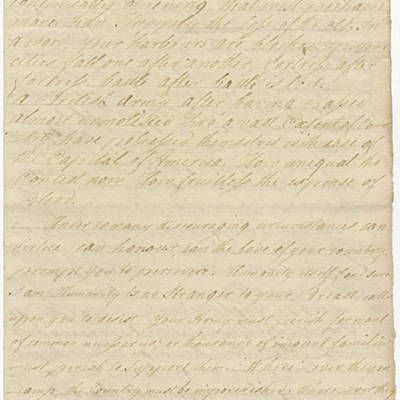 continually
more than the loss of the old. In
a word, your harbours are blocked up, your
cities fall one after another fortress after
fortress battle after battle is lost.
a British Army after having passed
almost unmolested thro' a vast Extent of Coun
try have possessed themselves with ease of
the Capital of America. How unequal the
Contest now How fruitless the expense of
Blood.
Under so many discouraging circumstances, can
Virtue can honour, can the love of your country
prompt you to persevere. Humanity itself (and sure
I am, Humanity is no Stranger to your Breast) calls
upon you to desist Your Army must perish for want
of common necessaries or thousands of innocent families
must perish to support them. Where ever they en
camp, the Country must be impoverished. Where ever they